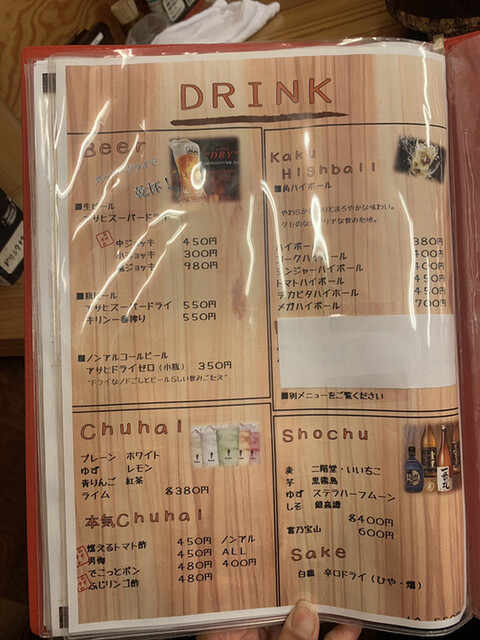 DRINK
Beer
乾杯！
■生ビール
アサヒスーパードライ
中ジョッキ 450円
小ジョッキ 300円
ジョッキ 980円
■瓶ビール
アサヒスーパードライ 550円
キリン一番搾り 550円
■ノンアルコールビール
アサヒドライゼロ（小瓶） 350円
"ドライなノドごしとビールらしい飲みごたえ"
Kaku
Highball
■角ハイボール
やわらかな香りとまろやかな味わい。
クセのないクリアな飲み心地。
ハイボール 380円
コークハイボール 400円
ジンジャーハイボール 400円
トマトハイボール 450円
デカビタハイボール 450円
メガハイボール 700円
■別メニューをご覧ください
Chuhai
プレーン ホワイト
ゆず レモン
青りんご 紅茶
ライム 各380円
本気Chuhai
燃えるトマト酢 450円 ノンアル
男梅 450円 ALL
でこっとポン 480円 400円
ふじリンゴ酢 480円
Shochu
麦 二階堂・いいちこ
芋 黒霧島
ゆず ステラハーフムーン
しそ 鍛高譚
各400円
富乃宝山 600円
Sake
白鶴 辛口ドライ（ひや・燗）